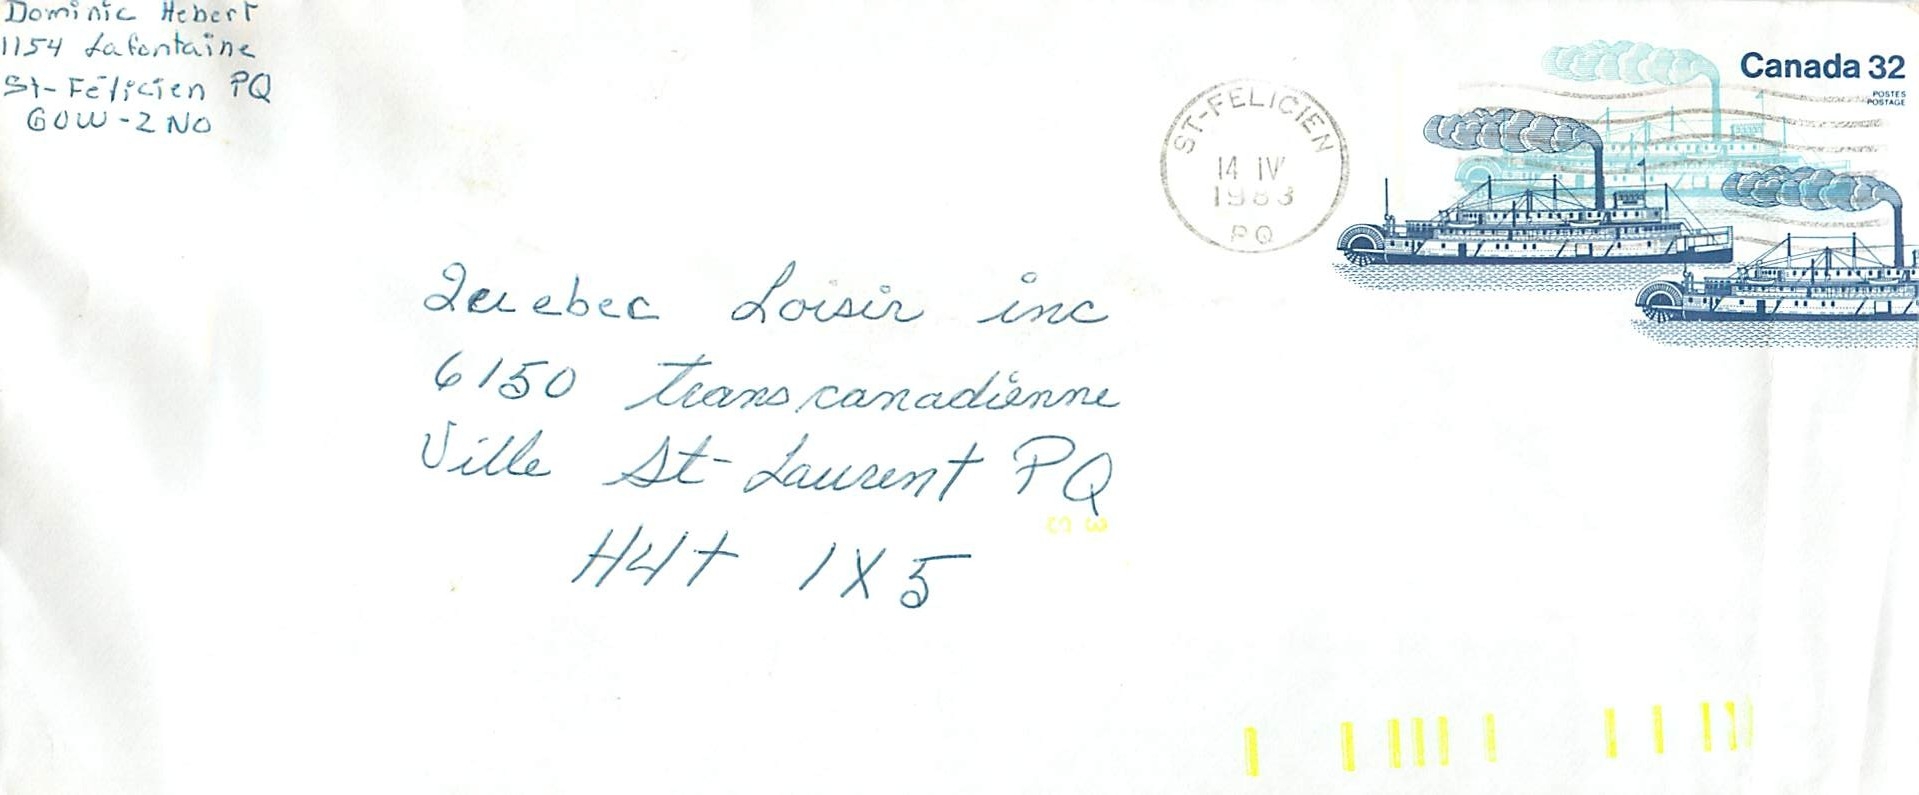 Dominic Hebert
1154 Lafontaine
St-Félicien PQ
G0W-2N0
Canada 32
POSTES
POSTAGE
ST-FELICIEN
14 IV
1983
PQ
Quebec Loisir inc
6150 transcanadienne
Ville St-Laurent PQ
H4t 1X5